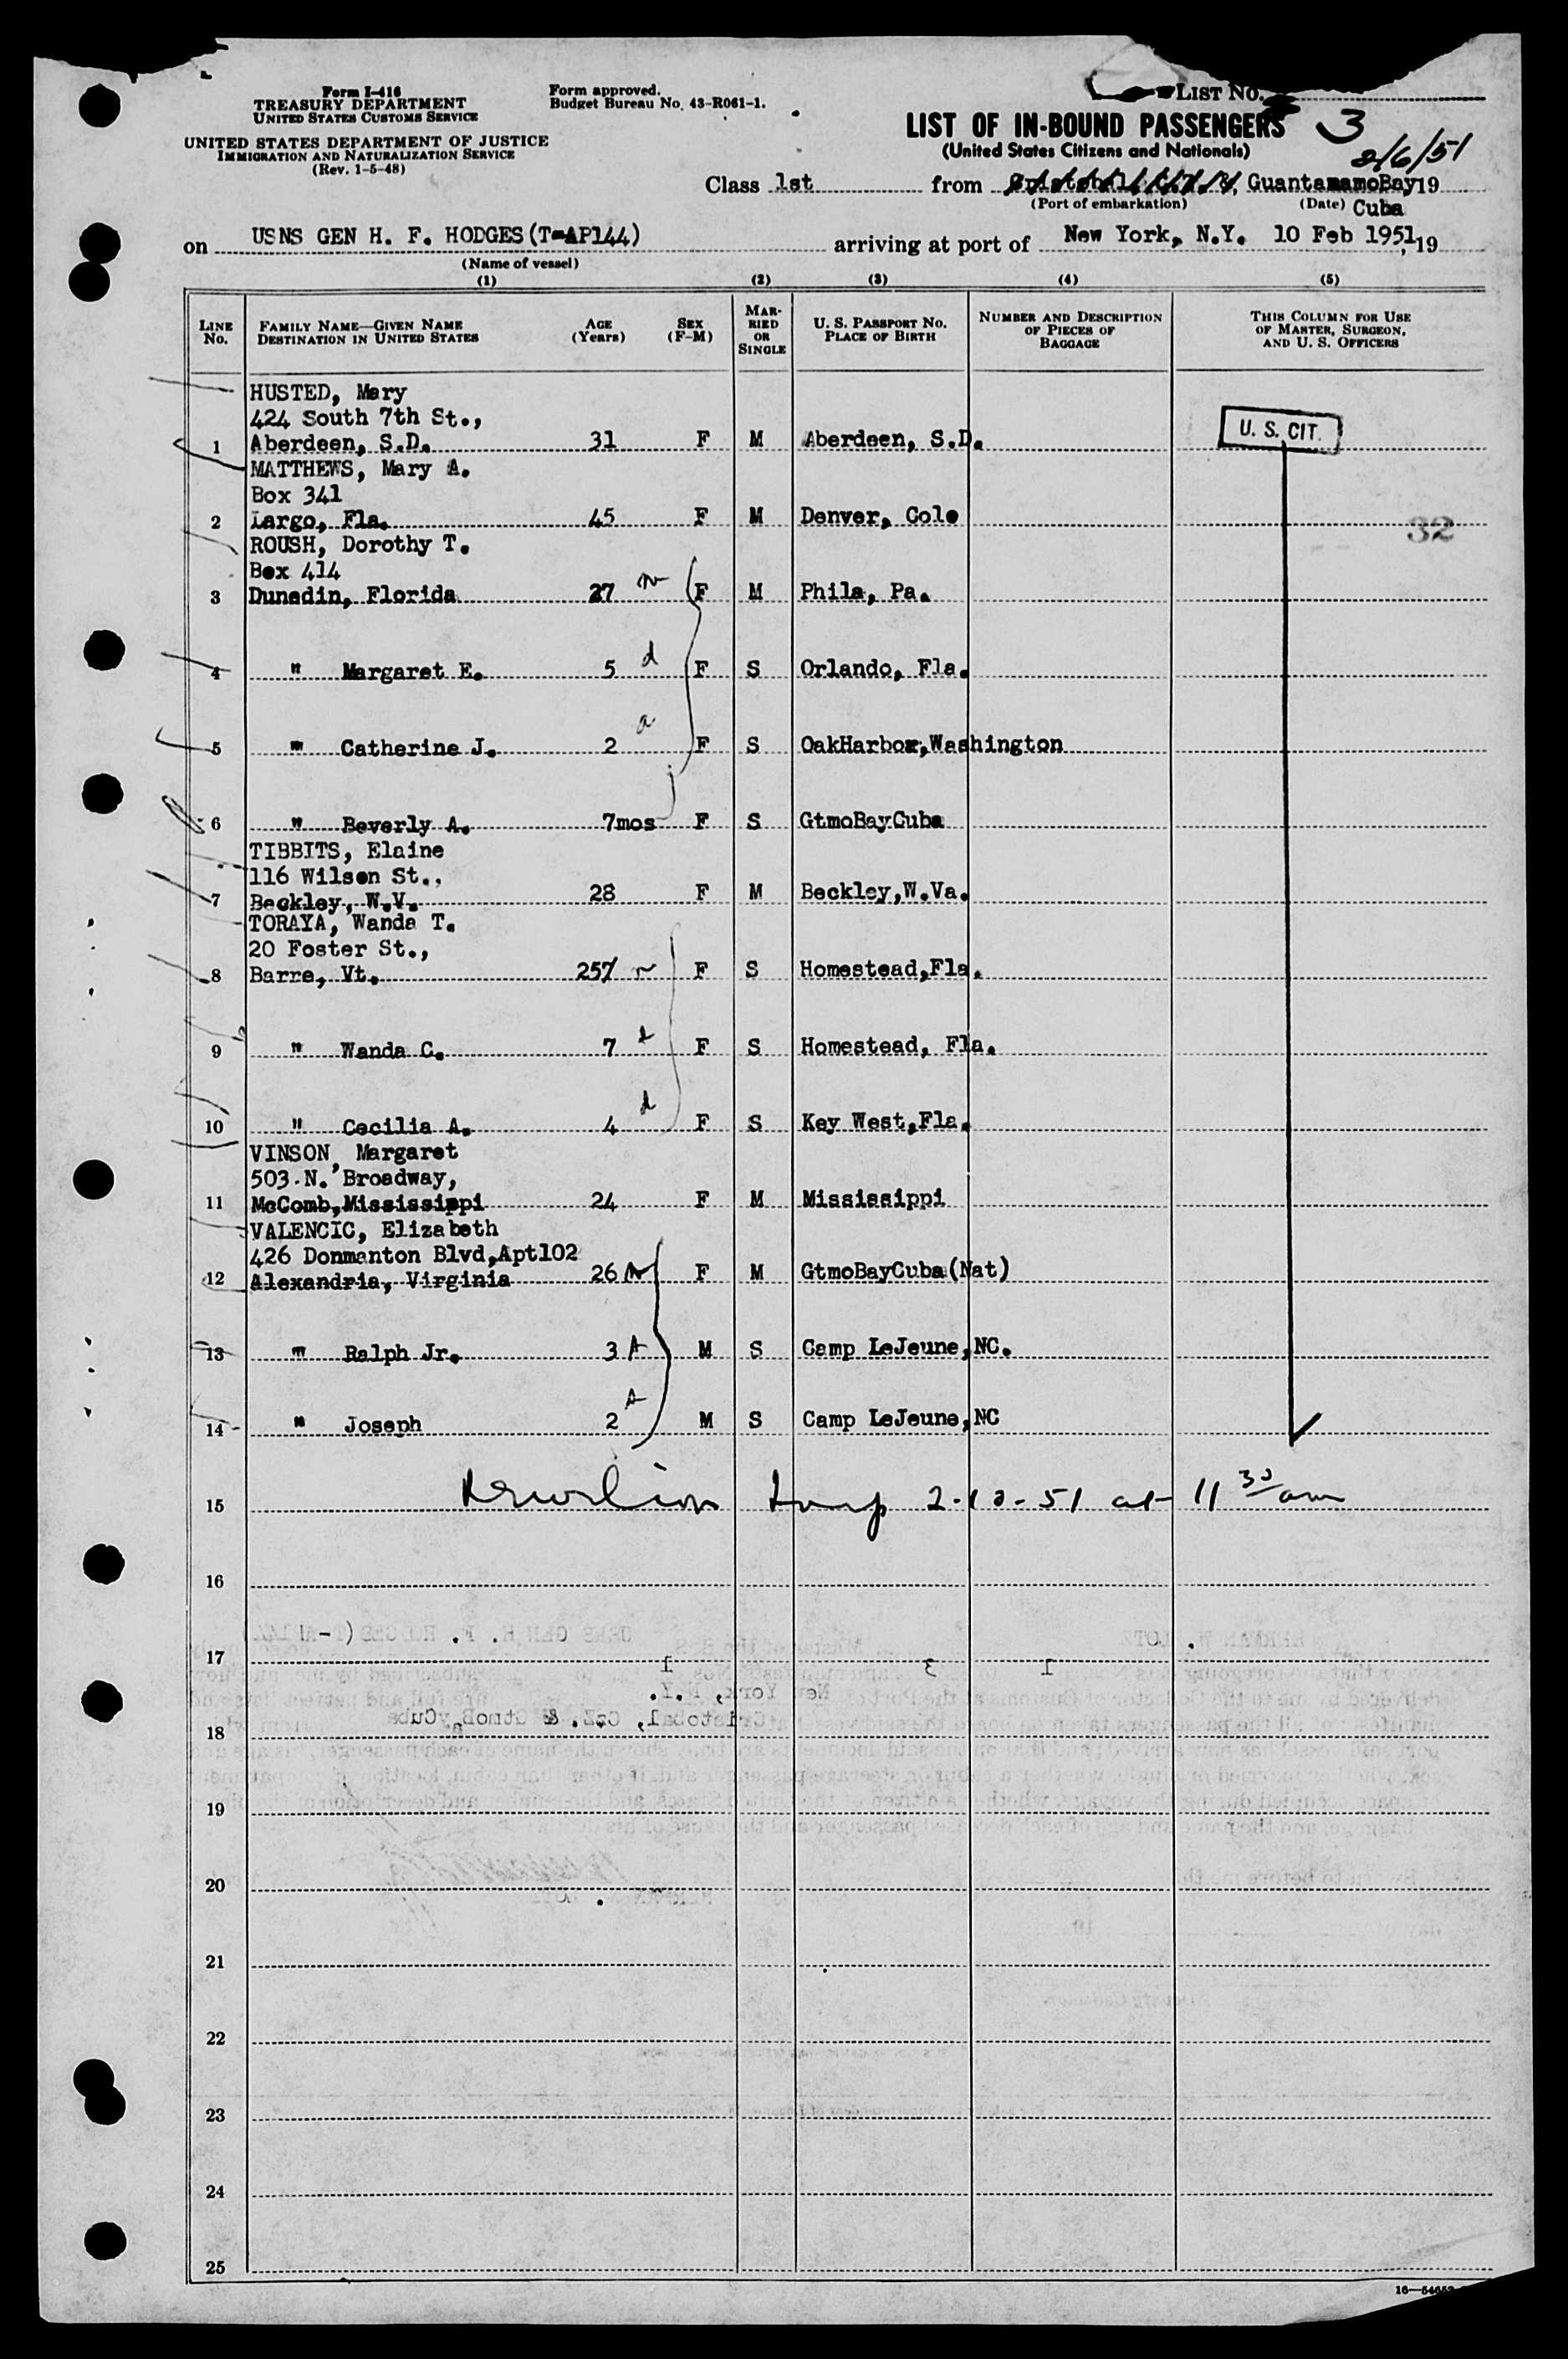 Form I-416
TREASURY DEPARTMENT
UNITED STATES CUSTOMS SERVICE
UNITED STATES DEPARTMENT OF JUSTICE
IMMIGRATION AND NATURALIZATION SERVICE
(Rev. 1-5-48)
Form approved.
Budget Bureau No. 43-R061-1.
LIST NO.
LIST OF IN-BOUND PASSENGERS 3
(United States Citizens and Nationals)
2/6/51
Class 1st from GuantanamoBay 19
(Port of embarkation) (Date) Cuba
on USNS GEN H. F. HODGES(T-AP144) arriving at port of New York, N.Y. 10 Feb 1951, 19
(Name of vessel)
(1) (2) (3) (4) (5)
LINE NO.
FAMILY NAME—GIVEN NAME
DESTINATION IN UNITED STATES
AGE (Years)
SEX (F-M)
MARRIED OR SINGLE
U. S. PASSPORT NO.
PLACE OF BIRTH
NUMBER AND DESCRIPTION OF PIECES OF BAGGAGE
THIS COLUMN FOR USE OF MASTER, SURGEON, AND U. S. OFFICERS
HUSTED, Mary
424 South 7th St.,
1 Aberdeen, S.D. 31 F M Aberdeen, S.D. U. S. CIT.
MATTHEWS, Mary A.
Box 341
2 Largo, Fla. 45 F M Denver, Colo 32
ROUSH, Dorothy T.
Box 414
3 Dunedin, Florida 27 m F M Phila, Pa.
4 " Margaret E. 5 d F S Orlando, Fla.
5 " Catherine J. 2 a F S OakHarbor,Washington
6 " Beverly A. 7mos F S GtmoBayCuba
TIBBITS, Elaine
116 Wilson St.,
7 Beckley, W.V. 28 F M Beckley,W.Va.
TORAYA, Wanda T.
20 Foster St.,
8 Barre, Vt. 25 F S Homestead,Fla.
9 " Wanda C. 7 d F S Homestead, Fla.
10 " Cecilia A. 4 d F S Key West,Fla.
VINSON, Margaret
503 N. Broadway,
11 McComb,Mississippi 24 F M Mississippi
VALENCIC, Elizabeth
426 Donmanton Blvd,Apt102
12 Alexandria, Virginia 26 F M GtmoBayCuba(Nat)
13 " Ralph Jr. 3 M S Camp LeJeune,NC.
14 " Joseph 2 M S Camp LeJeune,NC
15 Insp 2-10-51 at 11 30 am
16
17
18
19
20
21
22
23
24
25